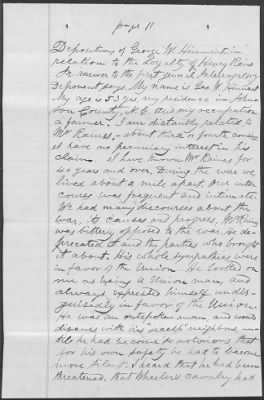 page 11
Deposition of George W. Hinnant in
relation to the Loyalty of Henry Rains
In answer to the first general Interrogatory
Deponent says My name is Geo. W. Hinnant
My age is 53 yrs, my residence in Johns
ton County, N.C. and my occupation
a farmer. I am distantly related to
Mr Raines, - about third or fourth cousin,
I have no pecuniary interest in his
claim. I have known Mr Raines for
40 years and over. During the war we
lived about a mile apart. Our inter
course was frequent and intimate.
We had many discourses about the
war, its causes and progress. Mr Rains
was bitterly opposed to the war. He de-
precated it and the parties who brought
it about. His whole sympathies were
in favor of the Union. He looked on
me as being a Union man, and
always expressed himself undis-
guisedly in favor of the Union.
He was an outspoken man, and would
discuss with his "secesh" neighbors, un-
till he had become so notorious that
for his own safety he had to become
more silent. I heard that he had been
threatened, that Wheeler's cavalry had